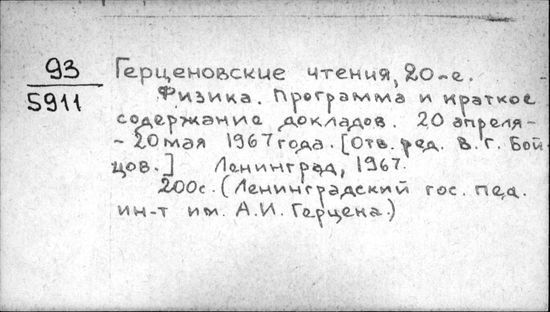 93
5911
Герценовские чтения, 20-е.
Физика. Программа и краткое
содержание докладов. 20 апреля-
- 20 мая 1967 года. [Отв. ред. В. Г. Бой-
цов.] Ленинград, 1967.
200с. (Ленинградский гос. пед.
ин-т им. А.И. Герцена.)